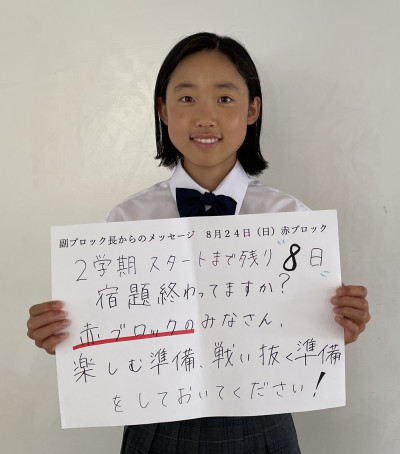 副ブロック長からのメッセージ　8月24日（日）赤ブロック
2学期 スタートまで残り 8日
宿題終わってますか？
赤ブロックのみなさん、
楽しむ準備、戦い抜く準備
をしておいてください！